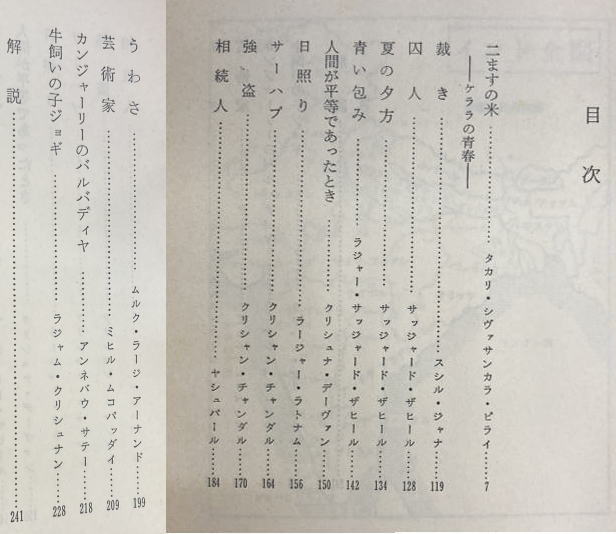 目次
二ますの米……タカリ・シヴァサンカラ・ピライ……7
――ケララの青春――
裁き……スシル・ジャナ……119
囚人……サッジャード・ザヒール……128
夏の夕方……サッジャード・ザヒール……134
青い包み……ラジャー・サッジャード・ザヒール……142
人間が平等であったとき……クリシュナ・デーヴァン……150
日照り……ラージャー・ラトナム……156
サーハブ……クリシャン・チャンダル……164
強盗……クリシャン・チャンダル……170
相続人……ヤシュパール……184
うわさ……ムルク・ラージ・アーナンド……199
芸術家……ミヒル・ムコパッダイ……209
カンジャーリーのバルバディヤ……アンネバウ・サテー……218
牛飼いの子ジョギ……ラジャム・クリシュナン……228
解説……241